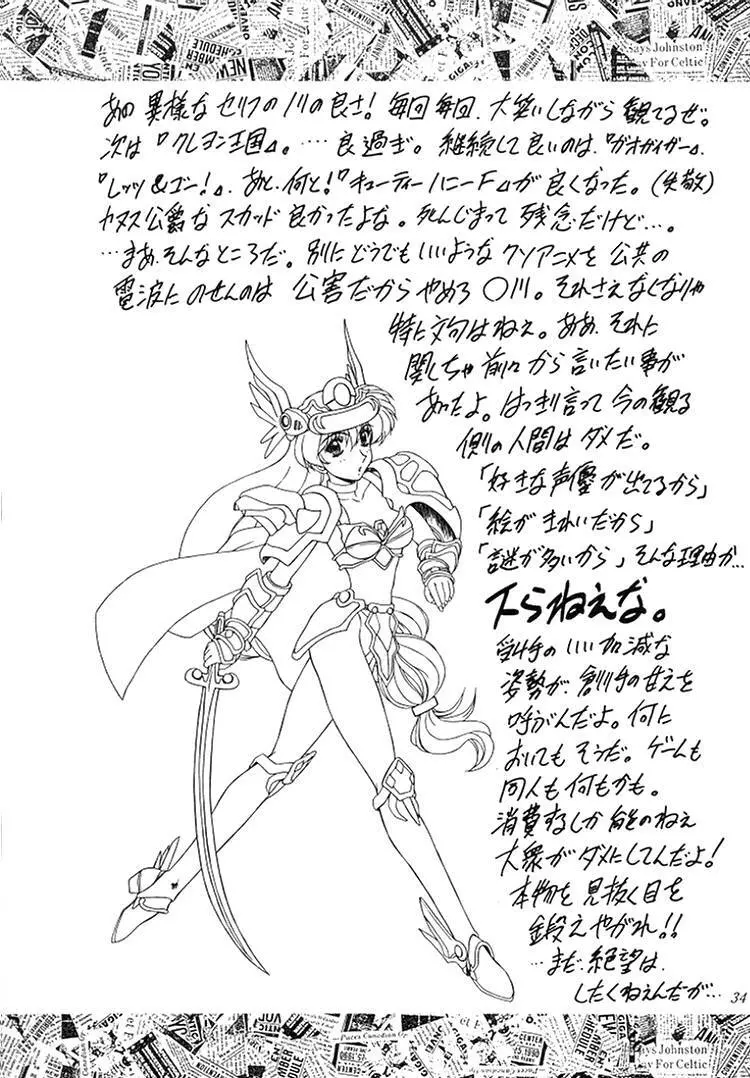 あの異様なセリフのノリの良さ！毎回毎回、大笑いしながら観てるぜ。
次は『クレヨン王国』。……良過ぎ。継続して良いのは、『ガオガイガー』、
『レッツ&ゴー！』、あと、何と！『キューティーハニーF』が良くなった。(失敬)
カヌス公爵なスカッド良かったよな。死んじまって残念だけど…。
…まあ、そんなところだ。別にどうでもいいようなクソアニメを公共の
電波にのせんのは公害だからやめろ〇川。それさえなくなりゃ
特に文句はねえ。ああ、それに
関しちゃ前々から言いたい事が
あったよ。はっきり言って今の観る
側の人間はダメだ。
「好きな声優が出てるから」
「絵がきれいだから」
「謎が多いから」そんな理由か…
下らねえな。
受け手のいい加減な
姿勢が、創り手の甘えを
呼ぶんだよ。何に
おいてもそうだ。ゲームも
同人も何もかも。
消費するしか能のねえ
大衆がダメにしてんだよ！
本物を見抜く目を
鍛えやがれ！！
…まだ、絶望は
したくねえんだが…
34
Says Johnston
Day For Celtic